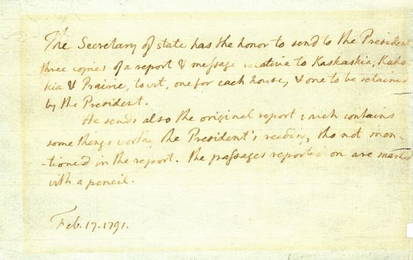 The Secretary of state has the honor to send to the President
three copies of a report & message relative to Kaskaskia, Kaho-
kia & Prairie, to wit, one for each house, & one to be retained
by the President.
He sends also the original report which contains
some things worthy the President's reading, tho not men-
-tioned in the report. the passages reported on are marked
with a pencil.
Feb. 17. 1791.